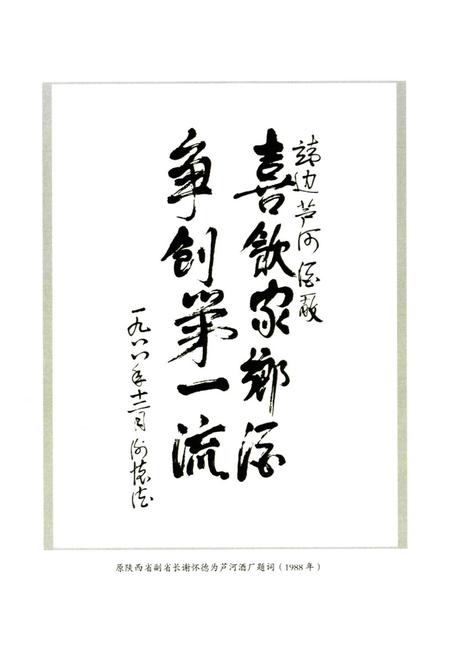 靖边芦河酒厰
喜飲家鄉酒
争创第一流
一九八八年十二月谢怀德
原陕西省副省长谢怀德为芦河酒厂题词（1988年）